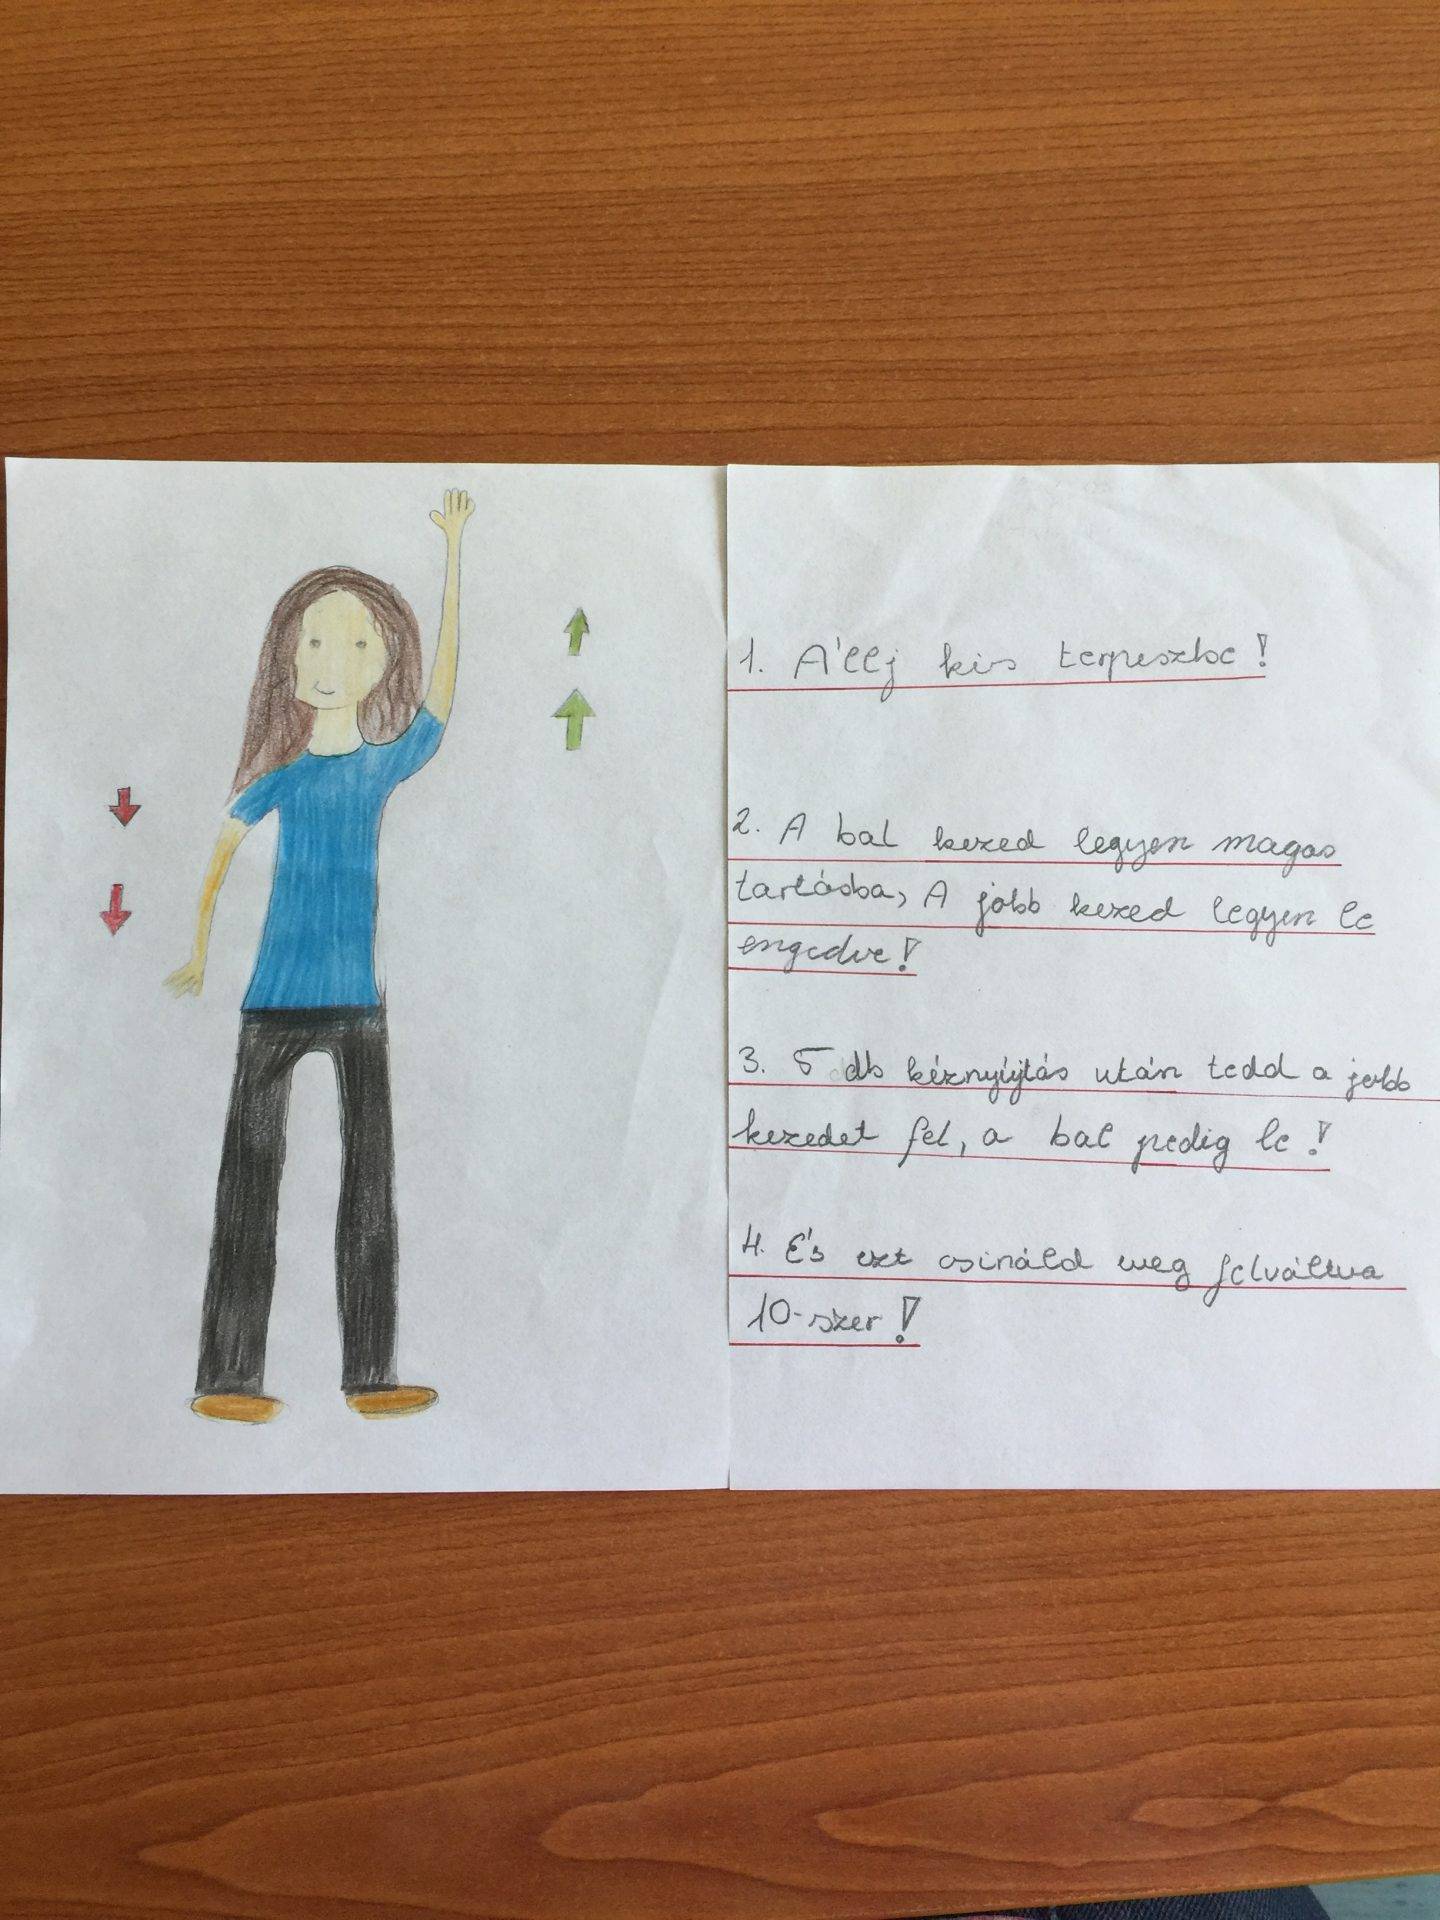 1. Állj kis terpeszbe!
2. A bal kezed legyen magas
tartásba, A jobb kezed legyen le
engedve!
3. 5 db kéznyújtás után tedd a jobb
kezedet fel, a bal pedig le!
4. És ezt csináld meg felváltva
10-szer!